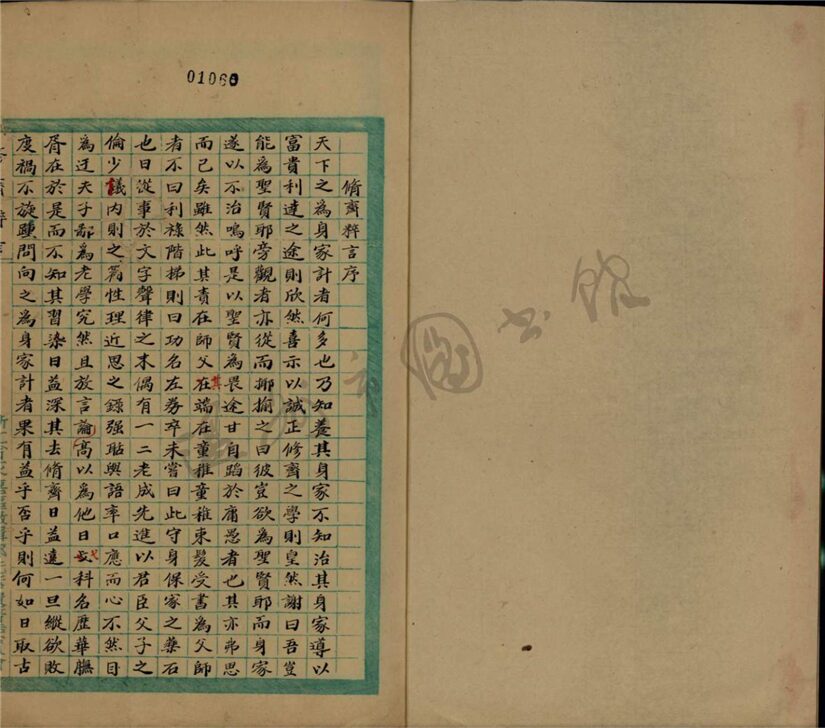 01060
脩齊粹言序
天下之為身家計者何多也乃知養其身家不知治其身家導以
富貴利達之途則欣然喜示以誠正修齊之學則皇然謝曰吾豈
能為聖賢耶旁觀者亦從而揶揄之曰彼豈欲為聖賢耶而身家
遂以不治嗚呼是以聖賢為畏途甘自蹈於庸愚者也其亦弗思
而已矣雖然此其責在師父在其端在童稚童稚束髮受書為父師
者不曰利祿階梯則曰功名左券卒未嘗曰此守身保家之藥石
也日從事於文字聲律之末偶有一二老成先進以君臣父子之
倫少議內則之篇性理近思之錄强聒與語率口應而心不然目
為迂夫子鄙為老學究然且放言論高以為他日科名歷華膴
胥在於是而不知其習染日益深其去脩齊日益遠一旦縱欲敗
度禍不旋踵問向之為身家計者果有益乎否乎則何如日取古
書館